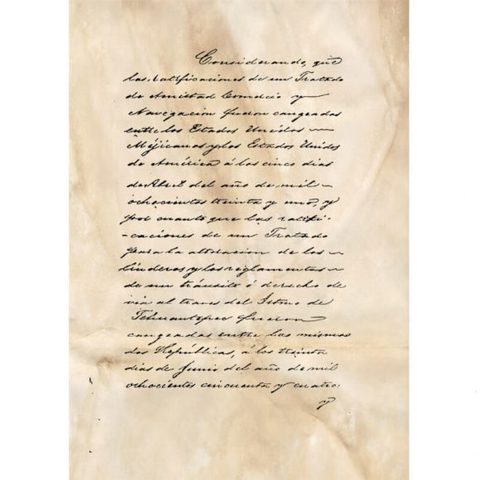 Considerando, que
las ratificaciones de un Tratado
de Amistad Comercio y
Navegacion fueron cangeadas
entre los Estados Unidos
Mejicanos y los Estados Unidos
de América á los cinco dias
de Abril del año de mil
ochocientos treinta y uno, y
por cuanto que las ratifi-
-caciones de un Tratado
para la alteracion de los
linderos y los reglamentos
de un tránsito ó derecho de
via al traves del Istmo de
Tehuantepec fueron
cangeadas entre las mismas
dos Repúblicas, á los treinta
dias de Junio del año de mil
ochocientos cincuenta y cuatro.
y